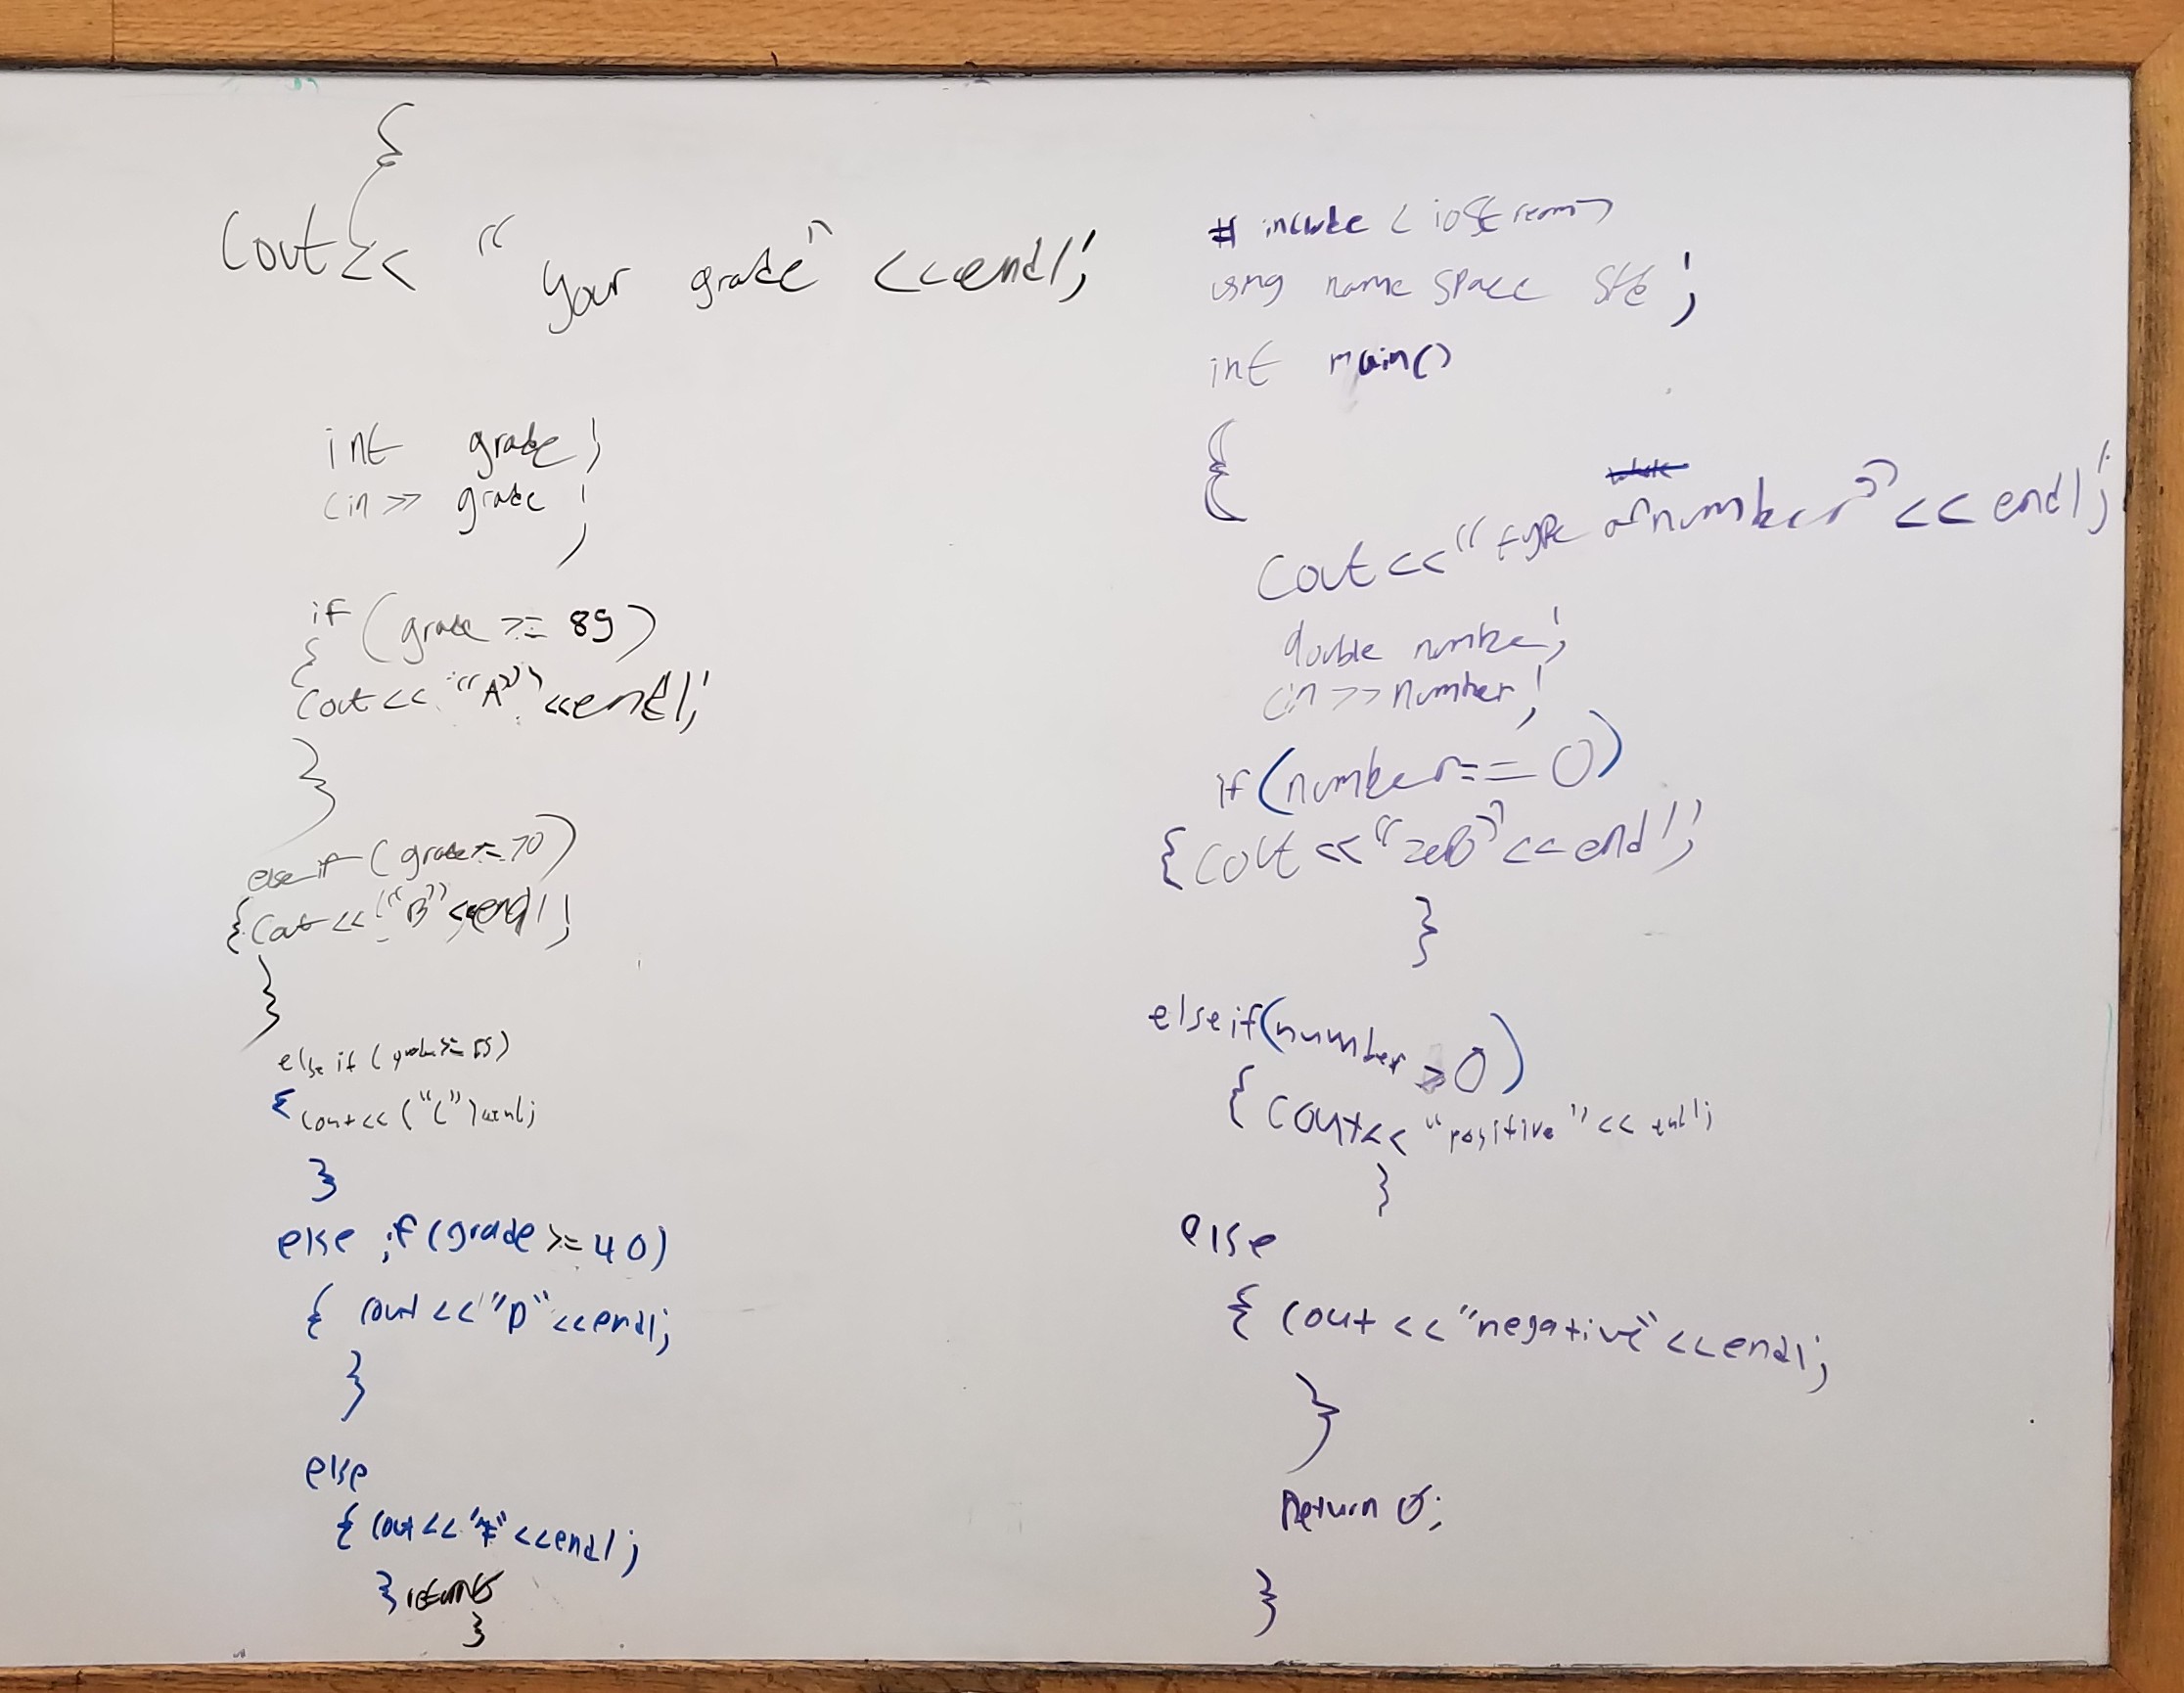 {
Cout << "your grade" <<endl;
int grade;
cin >> grade;
if (grade >= 89)
{
Cout << "A" <<endl;
}
else if (grade >= 70)
{ Cout << "B" <<endl;
}
else if (grade >= 55)
{ Cout << ("C") <<endl;
}
else if (grade >= 40)
{ cout << "D" <<endl;
}
else
{ cout << "F" <<endl;
}
}
# include <iostream>
using name space std;
int main()
{
Cout << "type of number" << endl;
double number;
cin >> number;
if (number == 0)
{ Cout << "zero" << endl;
}
else if (number > 0)
{ Cout << "positive" << endl;
}
else
{ Cout << "negative" << endl;
}
Return 0;
}